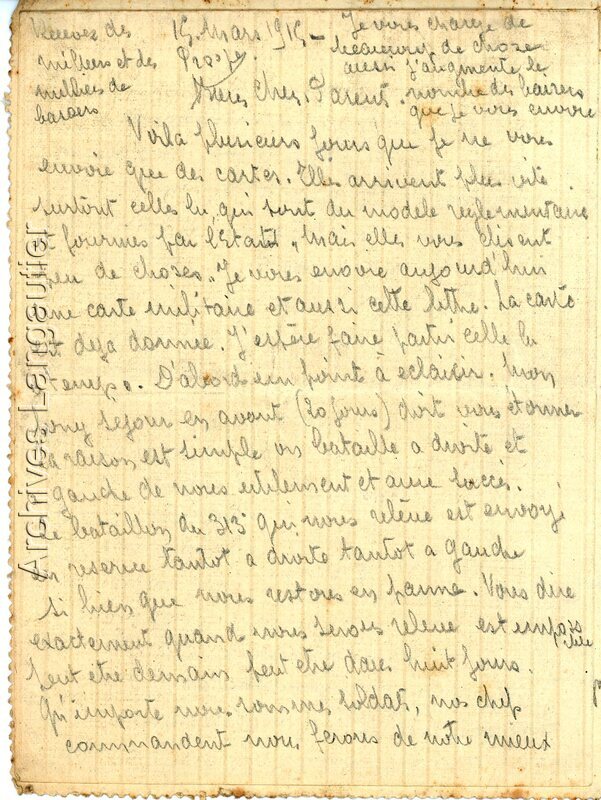 Recevez des
milliers et des
milliers de
baisers
15 Mars 1915 –
Je vous charge de
beaucoup de chose
aussi j'augmente le
nombre des baisers
que je vous envoie
Mes Chers Parent.
Voila plusieurs jours que je ne vous
envoie que des cartes. Elles arrivent plus vite
surtout celles la, qui sont du modele reglementaire
et fournies par l'Etat, Mais elles vous disent
peu de choses. Je vous envoie aujourd'hui
une carte militaire et aussi cette lettre. La carte
est deja donnée. J'espère faire partir celle la
a temps. D'abord un point à eclaicir. Mon
long séjour en avant (20 jours) doit vous étonner
la raison est simple on bataille a droite et
a gauche de nous utilement et avec succès.
Le bataillon du 313e qui nous relève est envoyé
en reserve tantot a droite tantot a gauche
si bien que nous restons en panne. Vous dire
exactement quand nous serons releve est impossible
peut etre demain peut etre dans huit jours.
Qu'importe nous sommes soldat, nos chef
commandent nous ferons de notre mieux
Archives Langouller